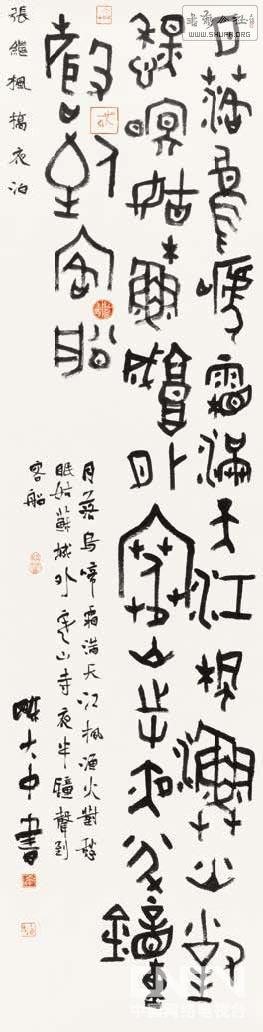 月落烏啼霜滿天江楓漁火對
愁眠姑蘇城外寒山寺夜半鐘
聲到客船
張繼楓橋夜泊
月落烏啼霜滿天江楓漁火對愁
眠姑蘇城外寒山寺夜半鐘聲到
客船
陳大中書
中国网络电视台